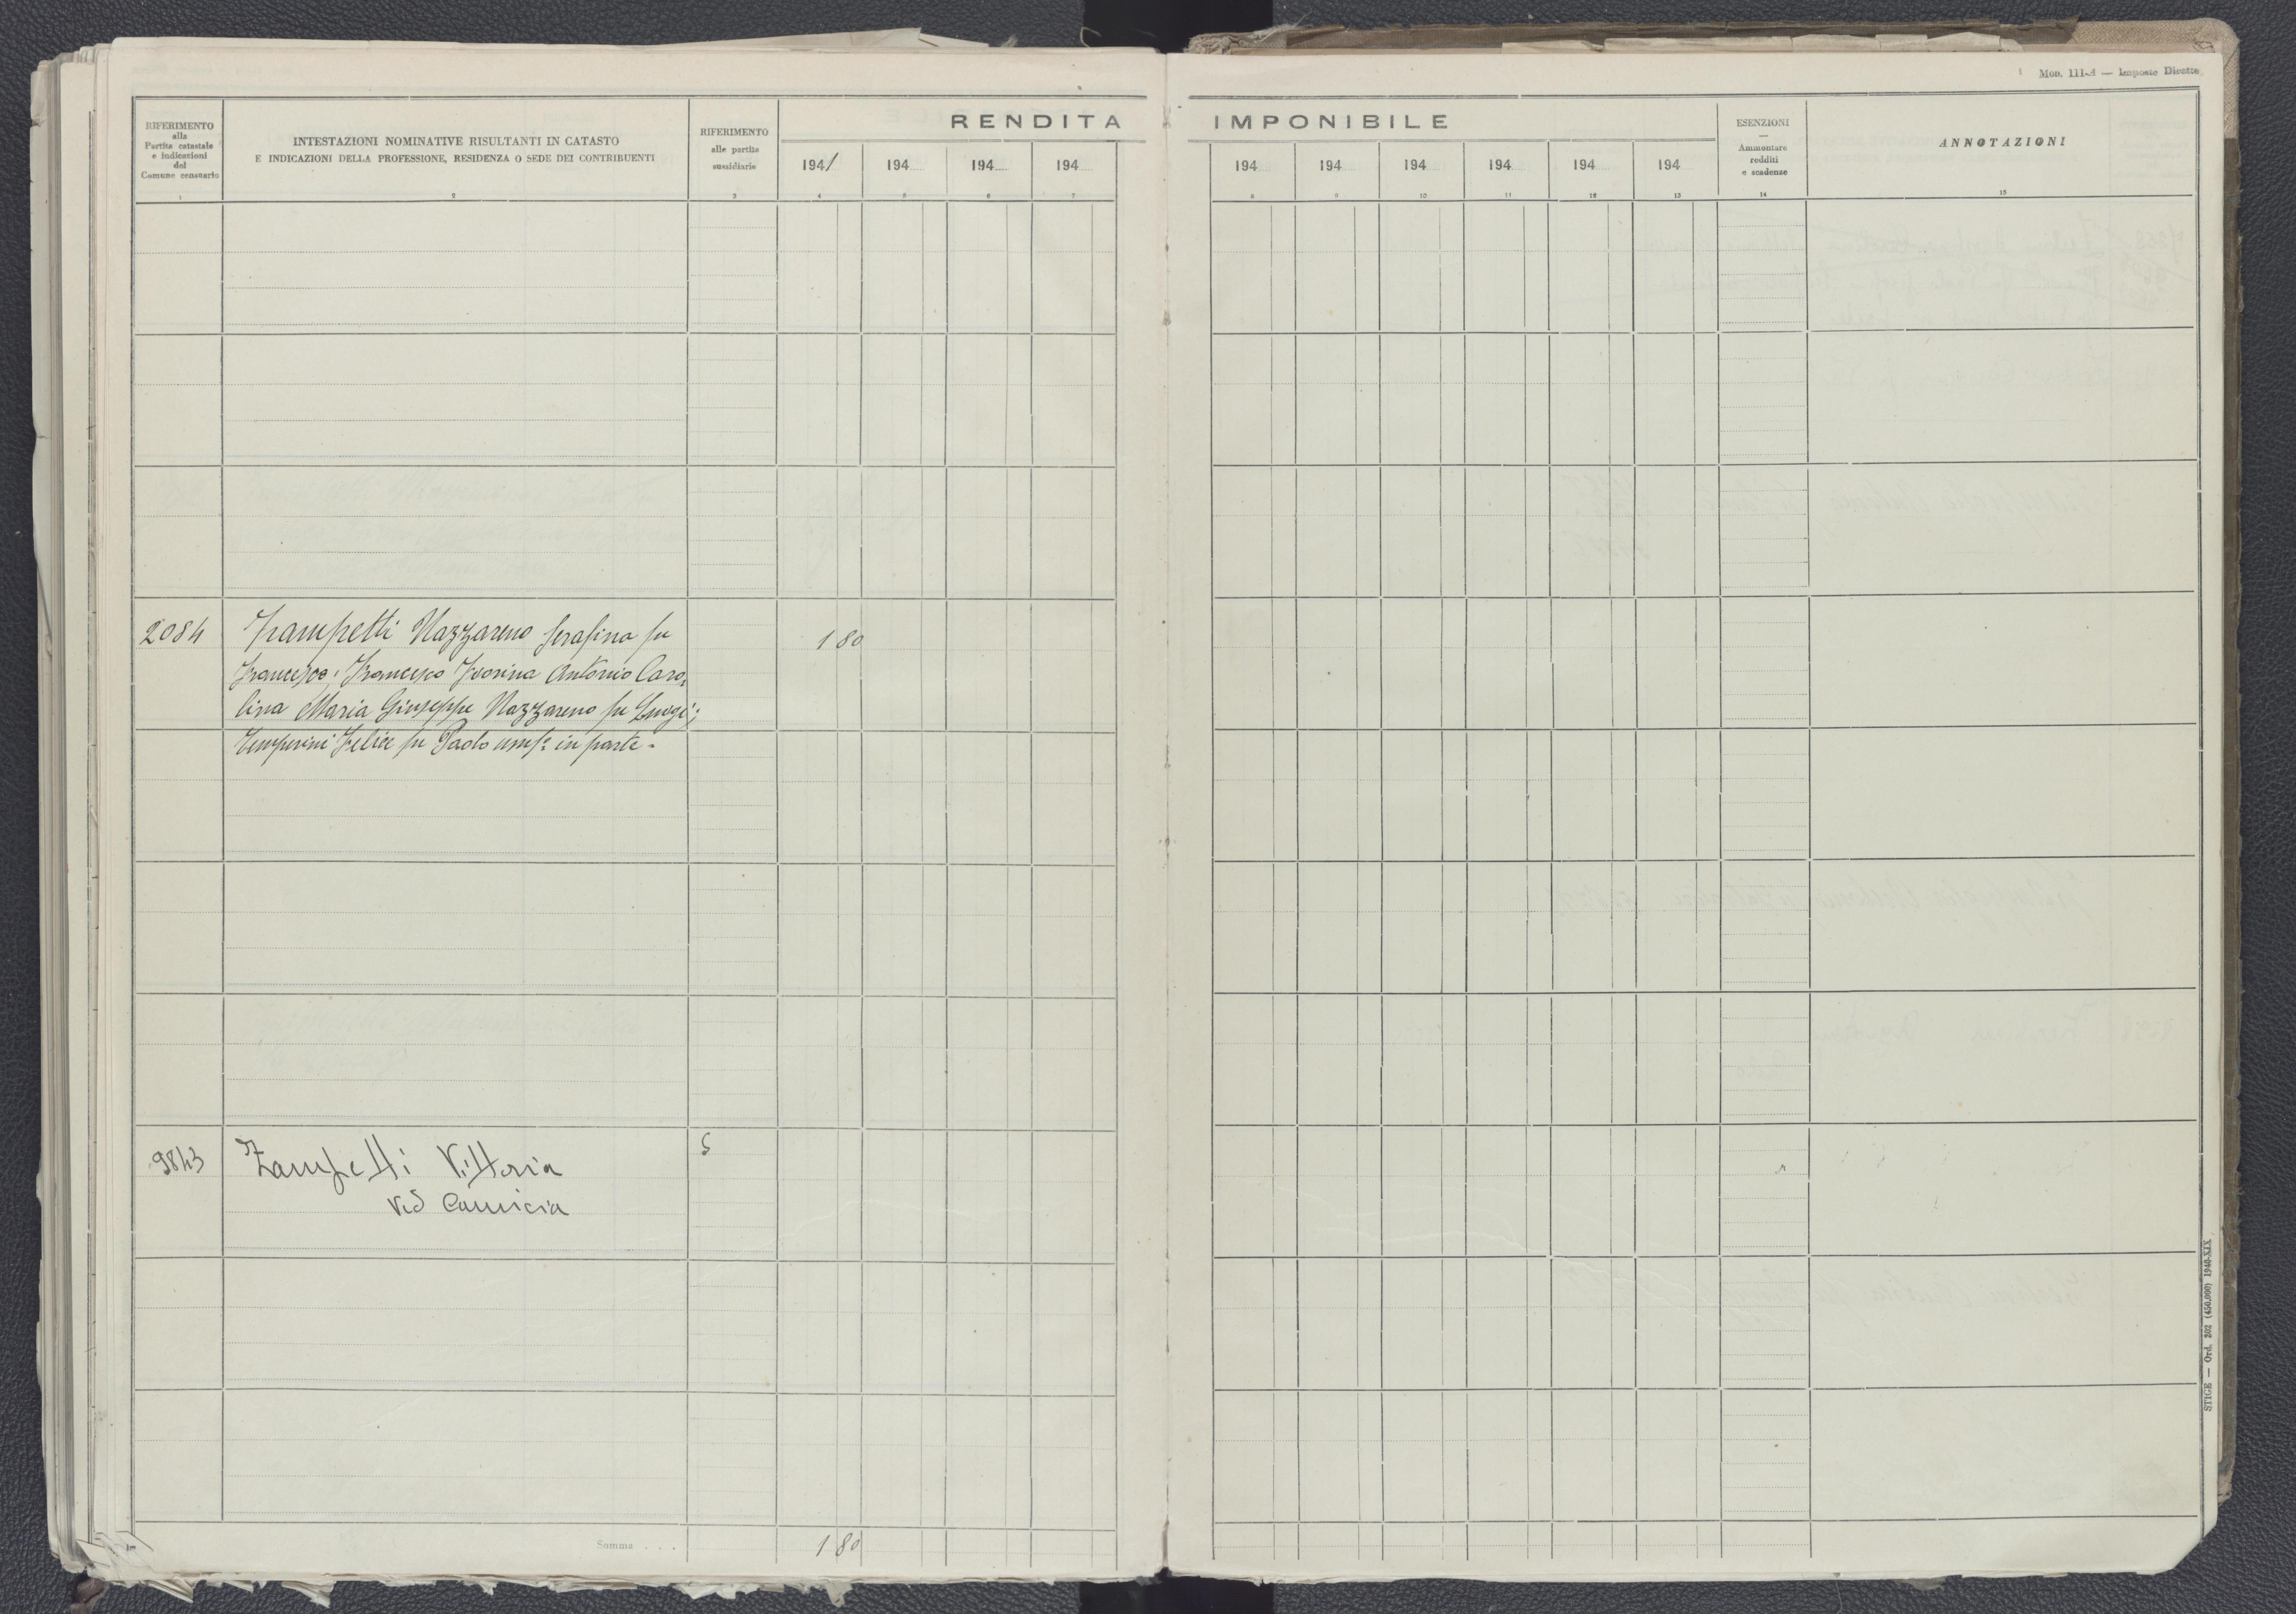 Mod. 111-A — Imposte Dirette
RENDITA IMPONIBILE
RIFERIMENTO
alla
Partita catastale
e indicazioni
del
Comune censuario
INTESTAZIONI NOMINATIVE RISULTANTI IN CATASTO
E INDICAZIONI DELLA PROFESSIONE, RESIDENZA O SEDE DEI CONTRIBUENTI
RIFERIMENTO
alle partite
sussidiarie
1941 194 194 194 194 194 194 194 194 194
ESENZIONI
—
Ammontare
redditi
e scadenze
ANNOTAZIONI
1 2 3 4 5 6 7 8 9 10 11 12 13 14 15
2084 Zampetti Nazzareno Serafina fu 1 80
Francesco; Francesco Ivorina Antonio Caro-
lina Maria Giuseppe Nazzareno fu Luigi;
Temperini Felice fu Paolo usuf. in parte.
9843 Zampetti Vittoria 5
Ved Camicia
Somma . . . 1 80
STIGE — Ord. 202 (450.000) 1940-XIX